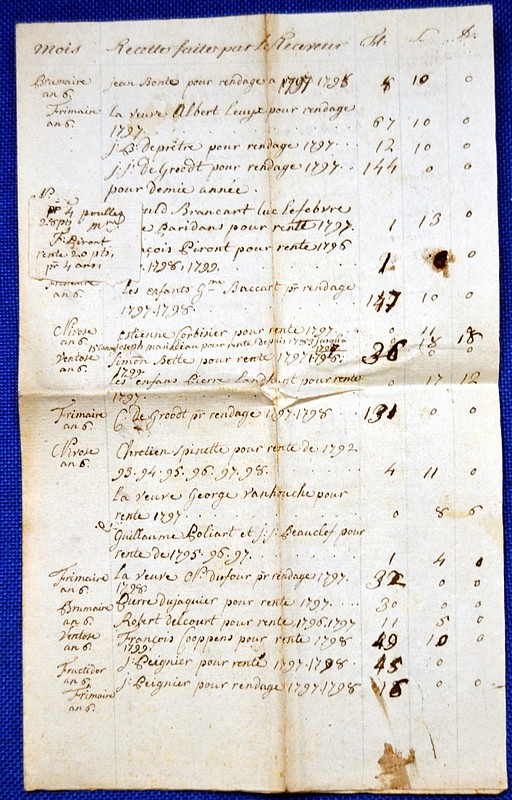 Mois Recettes faites par le Receveur
Brumaire Jean Bonte pour rendage a 1797 1798 8 10 0
an 6.
Frimaire La veuve Albert pour rendage
an 6. 1797 67 10 0
J: B: Deprêtre pour rendage 1797 12 10 0
J: J: De Groodt pour rendage 1797 144 0 0
pour demie année.
Brancart luc lefebvre
pr 4 poullets
Paridans pour rente 1797. 1 13 0
Fs Piront çois Piront pour rente 1796
rente 20 pts.
pr 4 ans . 1798. 1799. 1 0
Les enfants Gme Baccart pr rendage
an 6. 1797-1798 147 10 0
Nivose Estienne Corbisier pour rente 1797. 0 11
an 6. Joseph pour rente depuis 1783 18 18
Ventose Simon Bette pour rente 1797 1798. 36 0 0
an 6. 1799
Les enfans Pierre pour rente
1797. 0 17 12
Frimaire De Groodt pr rendage 1797-1798 131 0 0
an 6.
Nivose Chretien Spinette pour rente de 1792
an 6. 93. 94. 95. 96. 97. 98. 4 11 0
La veuve George Vanhouche pour
rente 1797. 0 8 6
Guillaume Poliart et J: J: Beauclef pour
rente de 1795. 96. 97. 1 4 0
Frimaire La veuve Ns Dufour pr rendage 1797. 32 0 0
an 6. 1798
Brumaire Pierre Dujaquier pour rente 1797. 30 0 0
an 6. Robert Delcourt pour rente 1796. 1797 11 5 0
Ventose François Coppens pour rente 1798 49 10 0
an 6. 1799.
Fructidor J: Peignier pour rente 1797-1798 45 0 0
an 6.
Frimaire J: Peignier pour rendage 1797-1798 16 0 0
an 6.